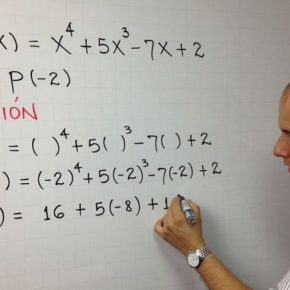 X) = X⁴ + 5X³ - 7X + 2
P(-2)
IÓN
= ( )⁴ + 5( )³ - 7( ) + 2
) = (-2)⁴ + 5(-2)³ - 7(-2) + 2
) = 16 + 5(-8) + 1